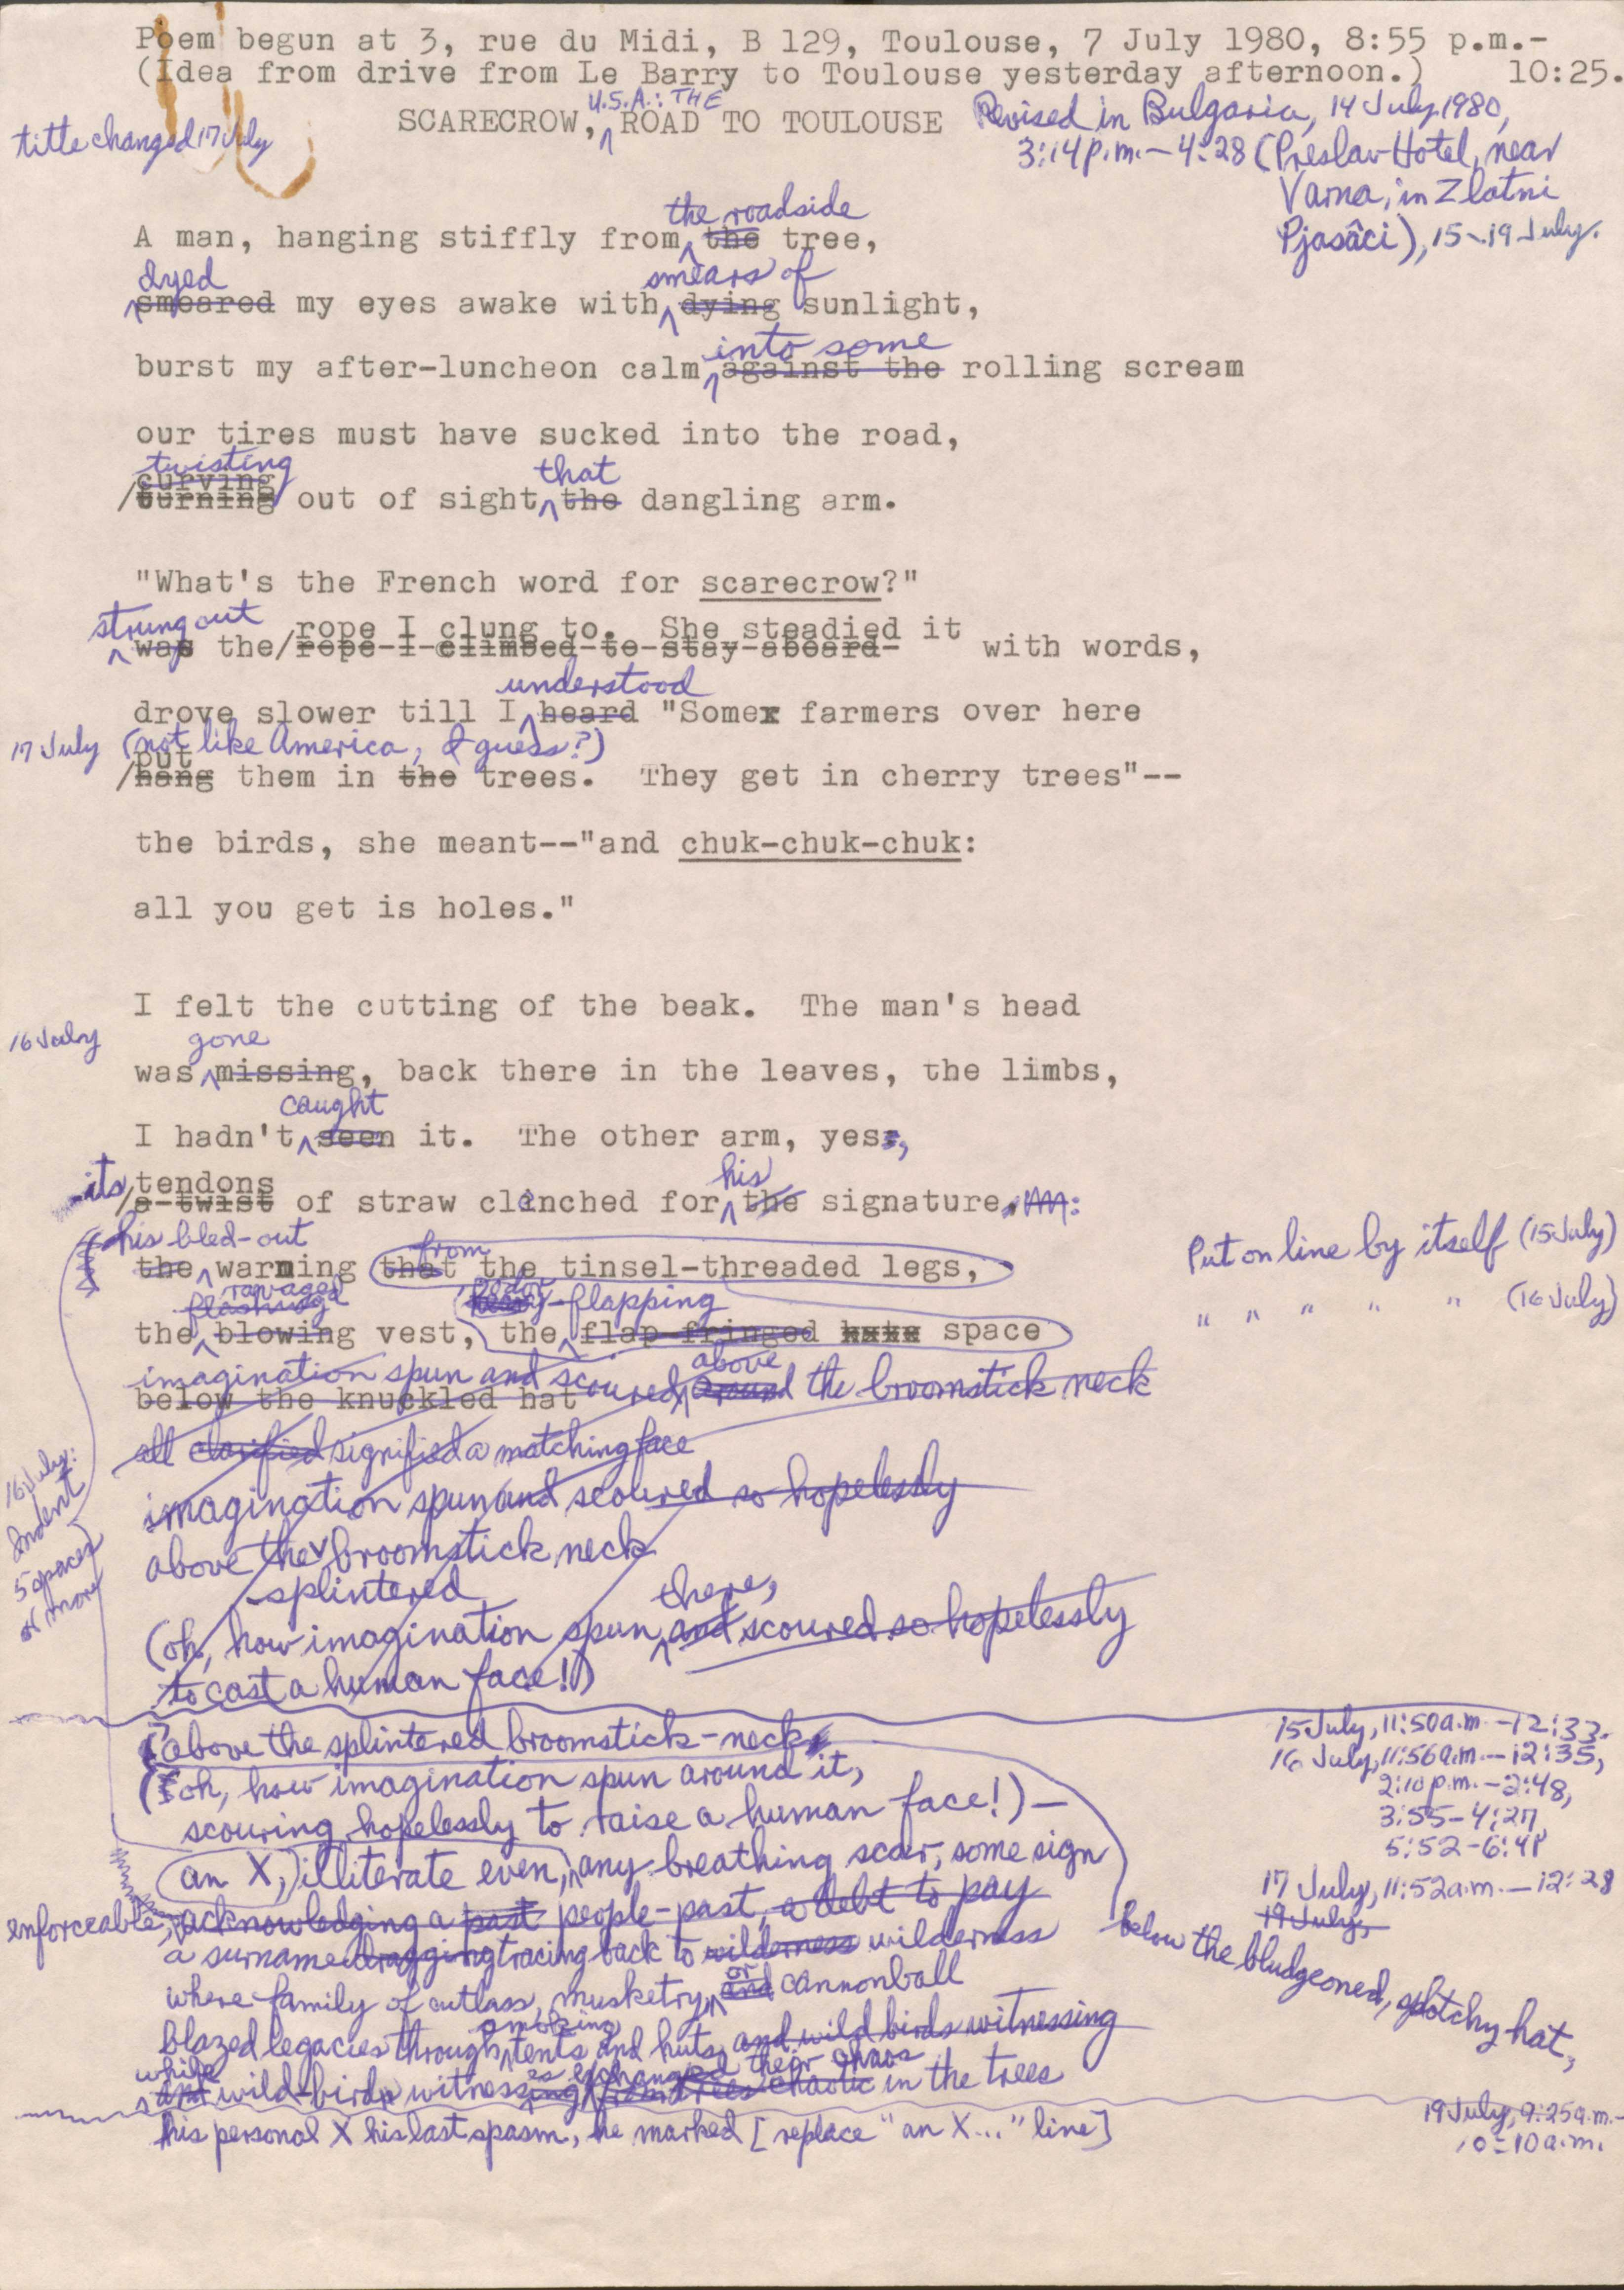 Poem begun at 3, rue du Midi, B 129, Toulouse, 7 July 1980, 8:55 p.m.-
(Idea from drive from Le Barry to Toulouse yesterday afternoon.) 10:25.
U.S.A.: THE
SCARECROW, ROAD TO TOULOUSE
title changed 17 July
Revised in Bulgaria, 14 July, 1980,
3:14 p.m. - 4:28 (Preslav Hotel, near
Varna, in Zlatni
Pjasâci), 15-19 July.
the roadside
A man, hanging stiffly from the tree,
dyed smears of
smeared my eyes awake with dying sunlight,
into some
burst my after-luncheon calm against the rolling scream
our tires must have sucked into the road,
twisting that
curving
/turning out of sight the dangling arm.
"What's the French word for scarecrow?"
strung out rope I clung to. She steadied it
was the/rope I climbed to stay aboard with words,
understood
drove slower till I heard "Some farmers over here
17 July (not like America, I guess?)
put
/hang them in the trees. They get in cherry trees"--
the birds, she meant--"and chuk-chuk-chuk:
all you get is holes."
I felt the cutting of the beak. The man's head
16 July gone
was missing, back there in the leaves, the limbs,
caught
I hadn't seen it. The other arm, yes,
its tendons his
/a twist of straw clenched for the signature:
his bled-out from
the warning that the tinsel-threaded legs,
Put on line by itself (15 July)
ravaged
-flapping
" " " " " (16 July)
the blowing vest, the flap-fringed space
imagination spun and scoured above around the broomstick neck
below the knuckled hat
all clarified signified a matching face
imagination spun and scoured so hopelessly
above the broomstick neck
splintered there,
(oh, how imagination spun and scoured so hopelessly
to cast a human face!)
16 July:
Indent
5 spaces
or more
above the splintered broomstick-neck
(oh, how imagination spun around it,
scouring hopelessly to raise a human face!)—
an X, illiterate even, any breathing scar, some sign
enforceable, acknowledging a past people-past, a debt to pay
a surname dragging tracing back to wilderness wilderness
or
where family of cutlass, musketry, and cannonball
smoking
blazed legacies through tents and huts, and wild birds witnessing
while exchanged their chaos
wild birds witnessing chaotic in the trees
his personal X his last spasm, he marked [replace "an X..." line]
15 July, 11:50 a.m. - 12:33.
16 July, 11:56 a.m. - 12:35,
2:10 p.m. - 2:48,
3:55 - 4:27,
5:52 - 6:41
17 July, 11:52 a.m. - 12:28
19 July,
below the bludgeoned, splotchy hat,
19 July, 9:25 a.m. -
10:10 a.m.